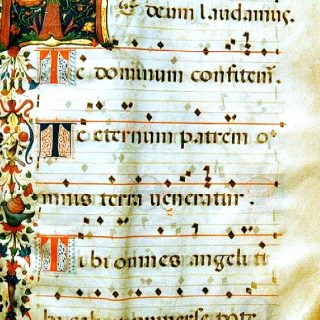 Te deum laudamus.
Te dominum confitem̄.
Te eternum patrem o
mnis terra veneratur.
Tibi omnes angeli ti